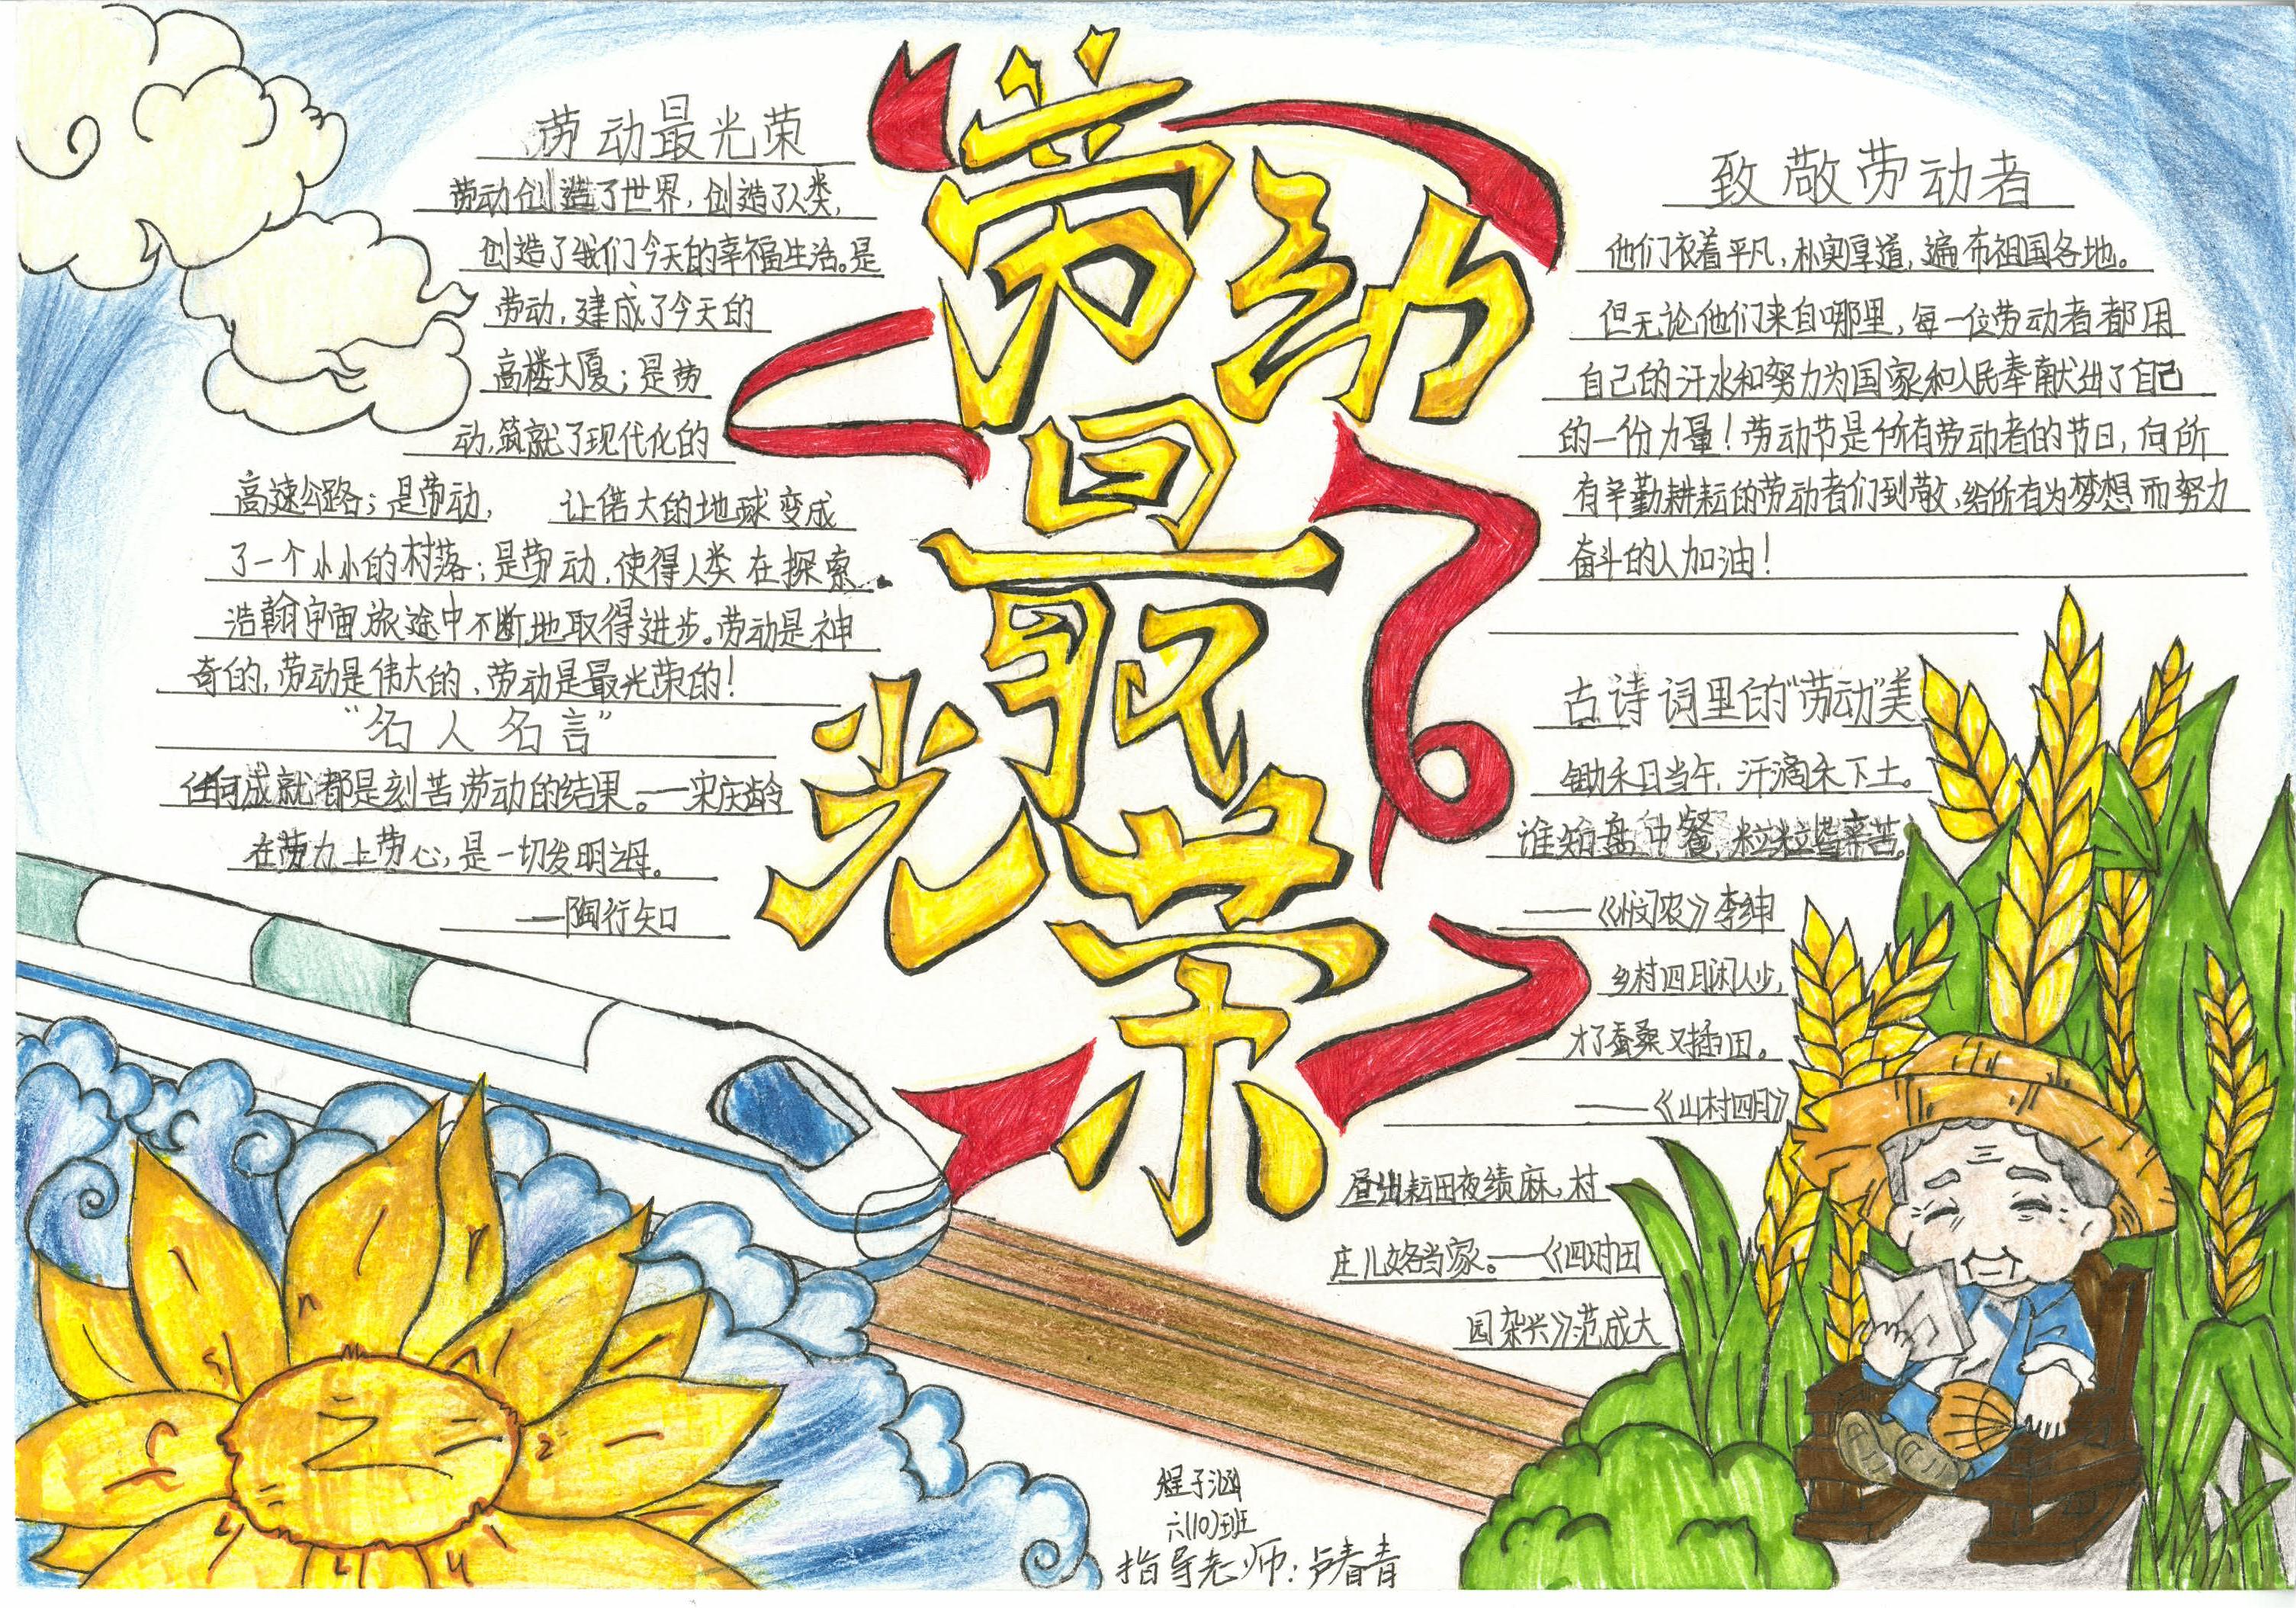 劳动最光荣
劳动最光荣
劳动创造了世界，创造了人类，
创造了我们今天的幸福生活。是
劳动，建成了今天的
高楼大厦；是劳
动，筑就了现代化的
高速公路；是劳动， 让偌大的地球变成
了一个小小的村落；是劳动，使得人类在探索
浩翰宇宙旅途中不断地取得进步。劳动是神
奇的，劳动是伟大的、劳动是最光荣的！
“名人名言”
任何成就都是刻苦劳动的结果。——宋庆龄
在劳力上劳心，是一切发明之母。
——陶行知
致敬劳动者
他们衣着平凡，朴实厚道，遍布祖国各地。
但无论他们来自哪里，每一位劳动者都用
自己的汗水和努力为国家和人民奉献出了自己
的一份力量！劳动节是所有劳动者的节日，向所
有辛勤耕耘的劳动者们到敬，给所有为梦想而努力
奋斗的人加油！
古诗词里的“劳动”美
锄禾日当午，汗滴禾下土。
谁知盘中餐，粒粒皆辛苦。
——《悯农》李绅
乡村四月闲人少，
才了蚕桑又插田。
——《山村四月》
昼出耘田夜绩麻，村
庄儿女各当家。——《四时田
园杂兴》范成大
程子涵
六(10)班
指导老师：卢春青